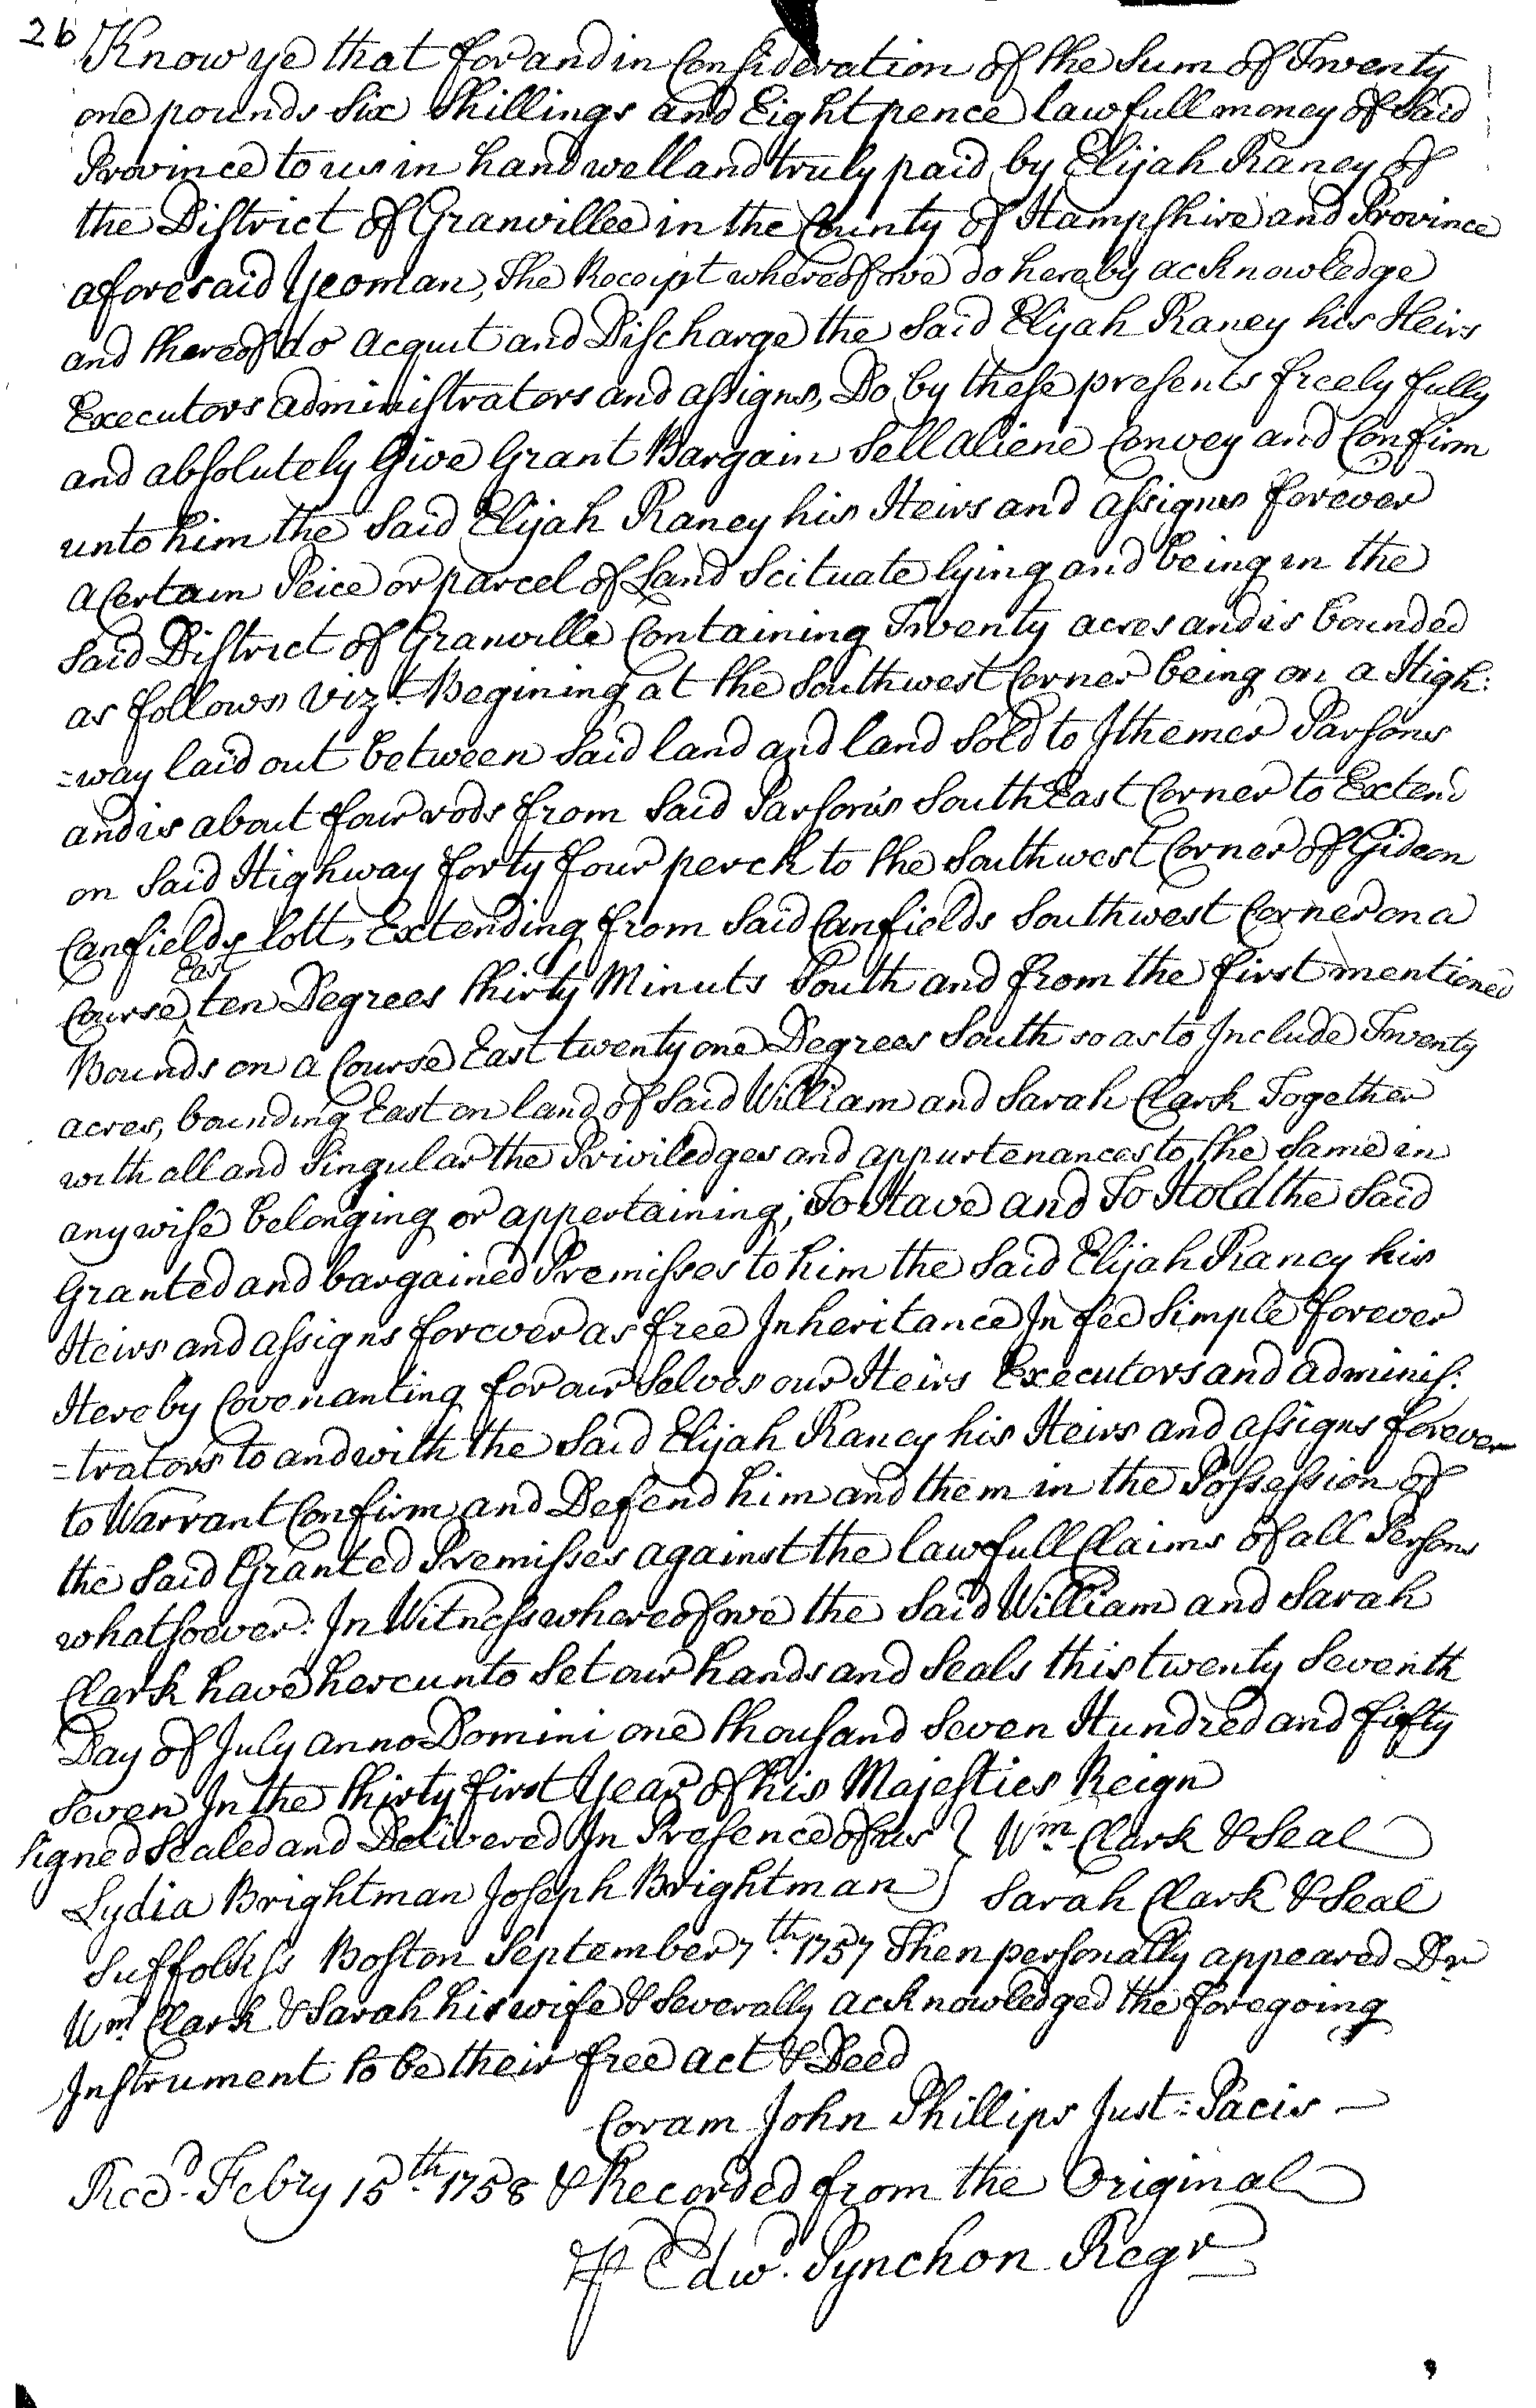 26 Know ye that for and in Consideration of the Sum of Twenty
one pounds Six Shillings and Eight pence lawfull money of Said
Province to us in hand well and truly paid by Elijah Raney of
the District of Granvillee in the County of Hampshire and Province
aforesaid Yeoman, The Receipt whereof we do hereby acknowledge
and thereof do acquit and Discharge the Said Elijah Raney his Heirs
Executors administrators and assigns, Do by these presents freely fully
and absolutely Give Grant Bargain Sell aliene Convey and Confirm
unto him the Said Elijah Raney his Heirs and assignes forever
a Certain Peice or parcel of Land Scituate lying and being in the
Said District of Granville Containing Twenty acres and is bounded
as follows Vizt. Begining at the Southwest Corner being on a High:
=way laid out between Said land and land Sold to Ithemer Parsons
and is about four rods from Said Parson's South East Corner to Extend
on Said Highway forty four perch to the Southwest Corner of Gideon
Canfields lott, Extending from Said Canfields Southwest Corner on a
Course East ten Degrees thirty Minuts South and from the first mentioned
Bounds on a Course East twenty one Degrees South so as to Include Twenty
acres, bounding East on land of Said William and Sarah Clark Together
with all and Singular the Priviledges and appurtenances to the Same in
any wise belonging or appertaining; To Have and To Hold the Said
Granted and bargained Premisses to him the Said Elijah Raney his
Heirs and assigns forever as free Inheritance In fee Simple forever
Hereby Covenanting for our Selves our Heirs Executors and adminis:
=trators to and with the Said Elijah Raney his Heirs and assigns forever
to Warrant Confirm and Defend him and them in the Possession of
the Said Granted Premisses against the lawfull Claims of all Persons
whatsoever: In Witness whereof we the Said William and Sarah
Clark have hereunto Set our hands and Seals this twenty Seventh
Day of July anno Domini one thousand Seven Hundred and fifty
Seven In the thirty first Year of his Majesties Reign
Signed Sealed and Delivered In Presence of us } Wm. Clark & Seal
Lydia Brightman Joseph Brightman } Sarah Clark & Seal
Suffolk ss Boston September 7th. 1757 Then personally appeared Dr
Wm. Clark & Sarah his wife & Severally acknowledged the foregoing
Instrument to be their free act & Deed
Coram John Phillips Just: Pacis
Recd. Febry 15th. 1758 & Recorded from the Original
⅌ Edwd. Pynchon Regr